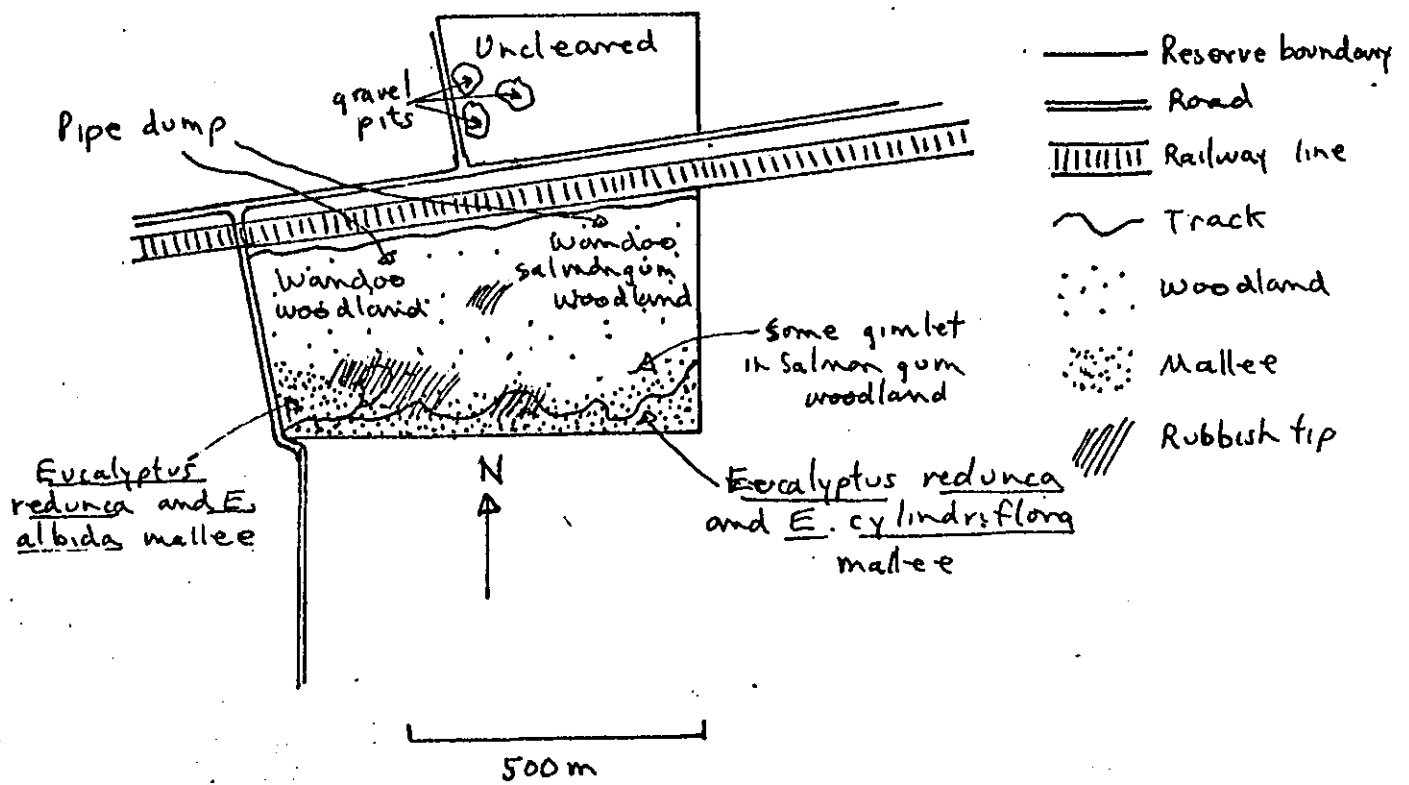 Uncleared
gravel
pits
Pipe dump
Wandoo
woodland
Wandoo
Salmongum
woodland
Some gimlet
in Salmon gum
woodland
Eucalyptus
redunca and E.
albida mallee
Eucalyptus redunca
and E. cylindriflora
mallee
N
500m
Reserve boundary
Road
Railway line
Track
Woodland
Mallee
Rubbish tip